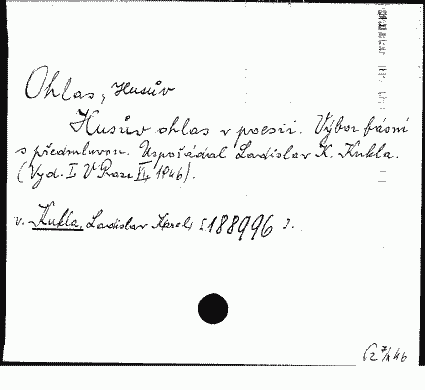 Ohlas, Husův
Husův ohlas v poesii. Výbor básní
s předmluvou. Uspořádal Ladislav K. Kukla.
(Vyd. I. V Praze 1946).
v. Kukla, Ladislav Karel, [188996].